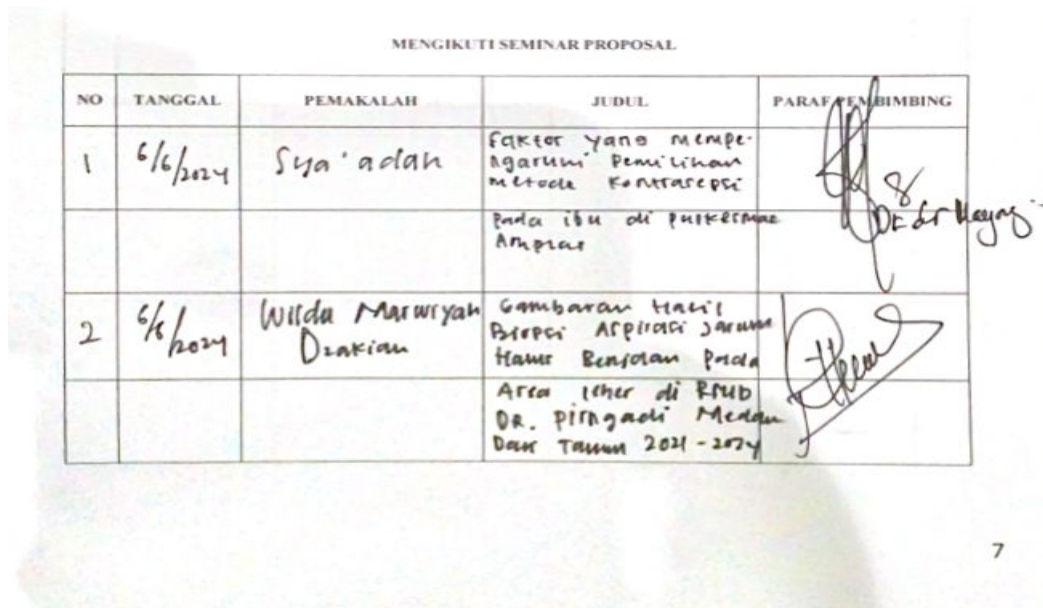 MENGIKUTI SEMINAR PROPOSAL
NO TANGGAL PEMAKALAH JUDUL PARAF PEMBIMBING
1 6/6/2024 Sya'adah Faktor yang mempe-
ngaruhi pemilihan
metode kontrasepsi
pada ibu di puskesmas
Amplas
Dr dr Mayang
2 6/6/2024 Wirda Marwiyah
Dzakiah
Gambaran Hasil
Biopsi Aspirasi Jarum
Halus Benjolan pada
Area leher di RSUD
DR. Pirngadi Medan
Dari Tahun 2021-2024
7